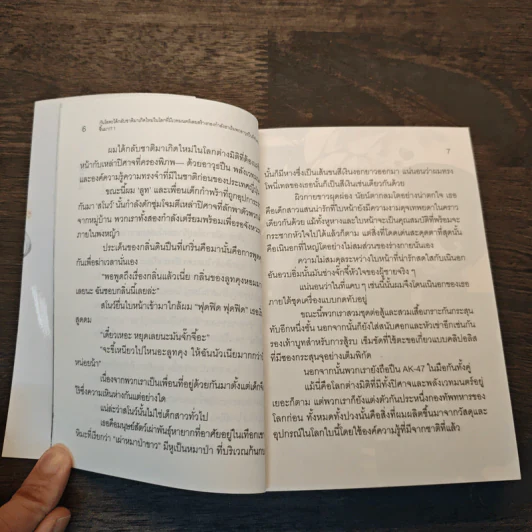 6
ผมได้กลับชาติมาเกิดใหม่ในโลกต่างมิติที่ต้อง
หน้ากับเหล่าปิศาจที่ครองพิภพ— ด้วยอาวุธปืน พลังเวทมนตร์
และองค์ความรู้ความทรงจำที่มีในชาติก่อนของประเทศญี่ปุ่น
ขณะนี้ผม 'ลูท' และเพื่อนเด็กกำพร้าที่ถูก
กันมา 'สโนว์' นั้นกำลังดักซุ่มโจมตีเหล่าปิศาจที่ลักพาตัว
จากหมู่บ้าน พวกเราทั้งสองกำลังเตรียมพร้อมเพื่อจะจัง
ภายในพงหญ้า
ประเด็นของกลิ่นดินปืนที่เกริ่นคือมานั้นคือการพูด
กันเพื่อฆ่าเวลานั่นเอง
"พอพูดถึงเรื่องกลิ่นแล้วเนี่ย กลิ่นของลูทคุงหอม
เลยนะ ฉันชอบกลิ่นนี้เลยล่ะ"
สโนว์ยื่นใบหน้าเข้ามาใกล้ผม "ฟุดฟิด ฟุดฟิด" เธอ
สูดดม
"เดี๋ยวเหอะ หยุดเลยนะมันจั๊กจี้อะ"
"จะขี้เหนียวไปไหนอะลูทคุง ให้ฉันนัวเนียมากกว่า
หน่อยน้า"
เนื่องจากพวกเราเป็นเพื่อนที่อยู่ด้วยกันมาตั้งแต่เด็ก
ไร้ซึ่งความเหินห่างกันแต่อย่างใด
แน่ล่ะว่าสโนว์นั้นไม่ใช่เด็กสาวทั่วไป
เธอคือมนุษย์สัตว์เผ่าพันธุ์หายากที่อาศัยอยู่ในเทือกเขา
หิมะที่เรียกว่า "เผ่าหมาป่าขาว" มีหูเป็นหมาป่า ที่บริเวณก้น
7
นั้นก็มีหางซึ่งเป็นเส้นขนสีเงินยาวออกมา แน่นอนว่าผมทรง
โพนี่เทลของเธอนั้นก็เป็นสีเงินเช่นเดียวกันด้วย
ผิวกายขาวผุดผ่อง นัยน์ตากลมโตอย่างน่าตกใจ เธอ
คือเด็กสาวแสนน่ารักที่ใบหน้ายังมีความงามดุจเทพธิดาในคราว
เดียวกันด้วย แม้ทั้งหูหางและใบหน้าจะเป็นคุณสมบัติที่พร้อมจะ
กระชากหัวใจไปได้แล้วก็ตาม แต่สิ่งที่โดดเด่นสะดุดตาที่สุดนั้น
คือเนินอกที่ใหญ่โตอย่างไม่สมส่วนของร่างกายนั่นเอง
ความไม่สมดุลระหว่างใบหน้าที่น่ารักสดใสกับเนินอก
อันอวบอิ่มนั่นมันช่างจั๊กจี้หัวใจของผู้ชายจริง ๆ
แน่นอนว่าในที่แคบ ๆ เช่นนี้นั้นผมจึงโดนเนินอกของเธอ
ภายใต้ชุดเครื่องแบบกดทับอยู่
ขณะนี้พวกเราสวมชุดต่อสู้และสวมเสื้อเกราะกันกระสุน
ทับอีกหนึ่งชั้น นอกจากนั้นก็ยังใส่สนับศอกและหัวเข่าอีกเช่นกัน
รองเท้าบูทสำหรับการสู้รบ เข็มขัดที่ใช้ตะขอเกี่ยวแบบคลิปอลิส
ที่มีซองกระสุนอย่างเต็มพิกัด
นอกจากนั้นพวกเรายังถือปืน AK-47 ในมือกันทั้งคู่
แม้นี่คือโลกต่างมิติที่มีทั้งปิศาจและพลังเวทมนตร์อยู่
เยอะก็ตาม แต่พวกเราก็ยังแต่งตัวกันประหนึ่งกองทัพทหารของ
โลกก่อน ทั้งหมดทั้งปวงนั้นคือสิ่งที่ผมผลิตขึ้นมาจากวัสดุและ
อุปกรณ์ในโลกใบนี้โดยใช้องค์ความรู้ที่มีจากชาติที่แล้ว